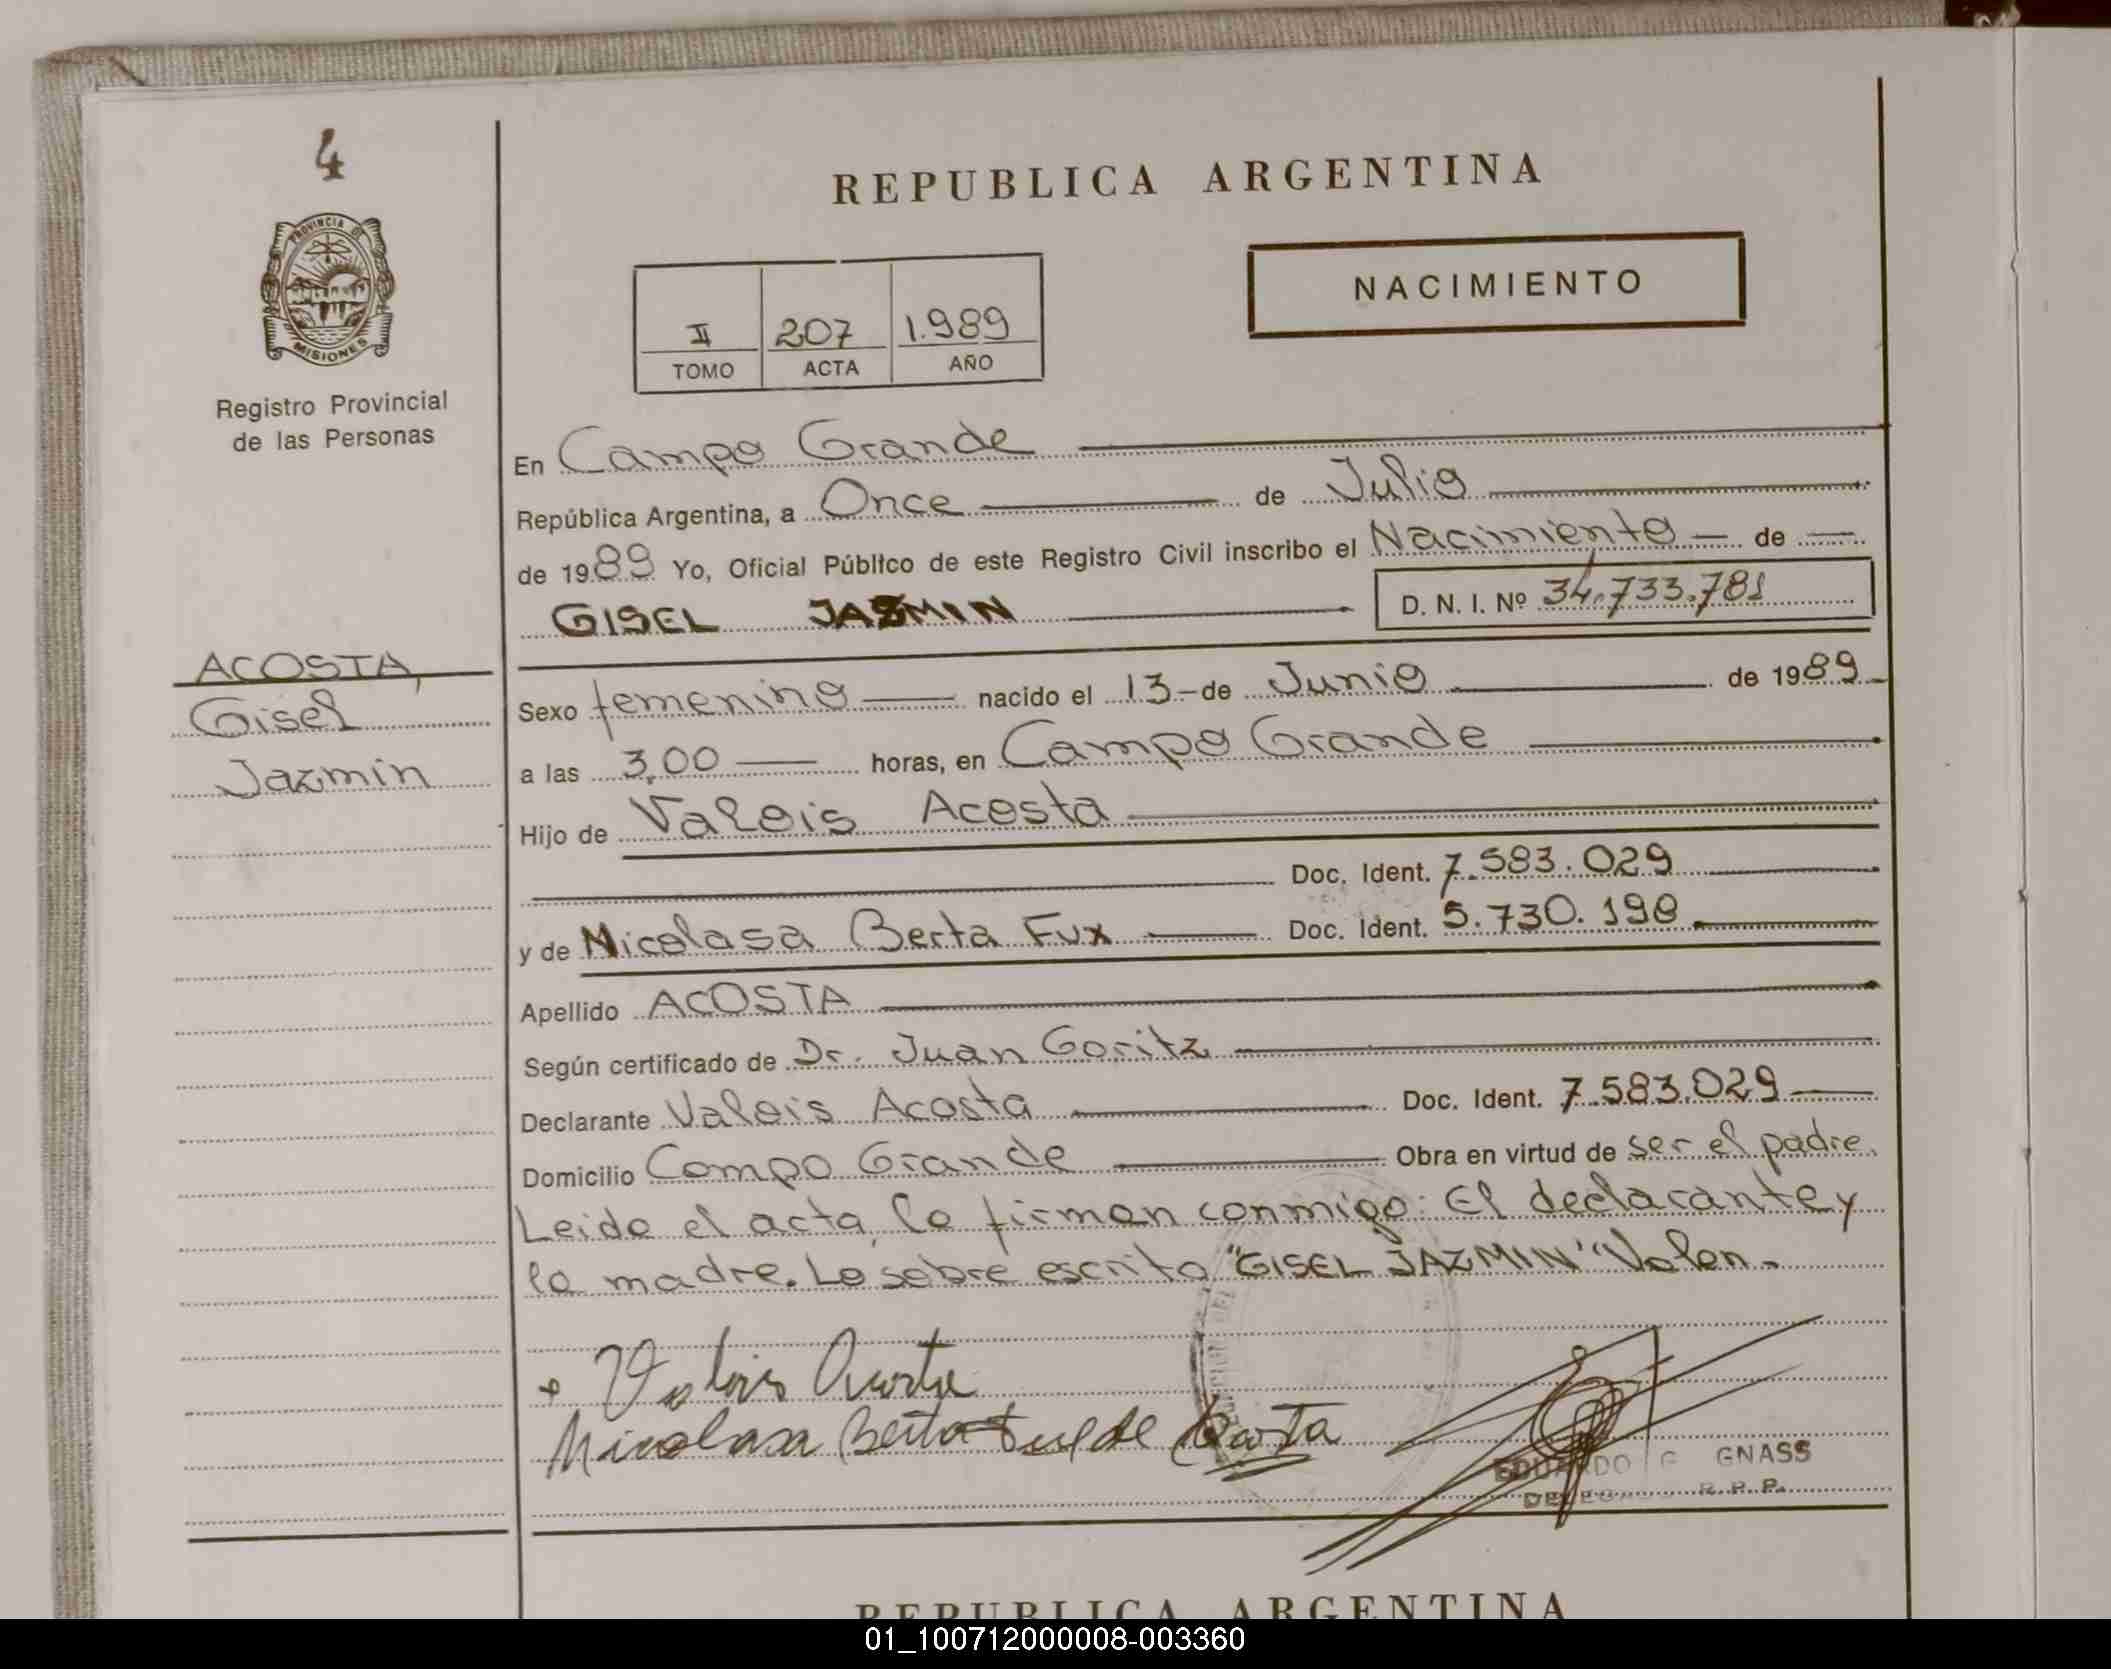 4
PROVINCIA DE
MISIONES
Registro Provincial
de las Personas
REPUBLICA ARGENTINA
NACIMIENTO
II 207 1.989
TOMO ACTA AÑO
En Campo Grande
República Argentina, a Once de Julio
de 1989 Yo, Oficial Público de este Registro Civil inscribo el Nacimiento de
GISEL JAZMIN D. N. I. Nº 34.733.781
ACOSTA,
Gisel
Jazmin
Sexo femenino nacido el 13 de Junio de 1989
a las 3,00 horas, en Campo Grande
Hijo de Valois Acosta
Doc. Ident. 7.583.029
y de Nicolasa Berta Fux Doc. Ident. 5.730.198
Apellido ACOSTA
Según certificado de Dr. Juan Goritz
Declarante Valois Acosta Doc. Ident. 7.583.029
Domicilio Campo Grande Obra en virtud de ser el padre.
Leida el acta, la firman conmigo: El declarante y
la madre. Lo sobre escrito "GISEL JAZMIN" Valen.
Valois Acosta
Nicolasa Berta Fux de Acosta
EDUARDO G. GNASS
DELEGADO R. P. P.
REPUBLICA ARGENTINA
01_100712000008-003360